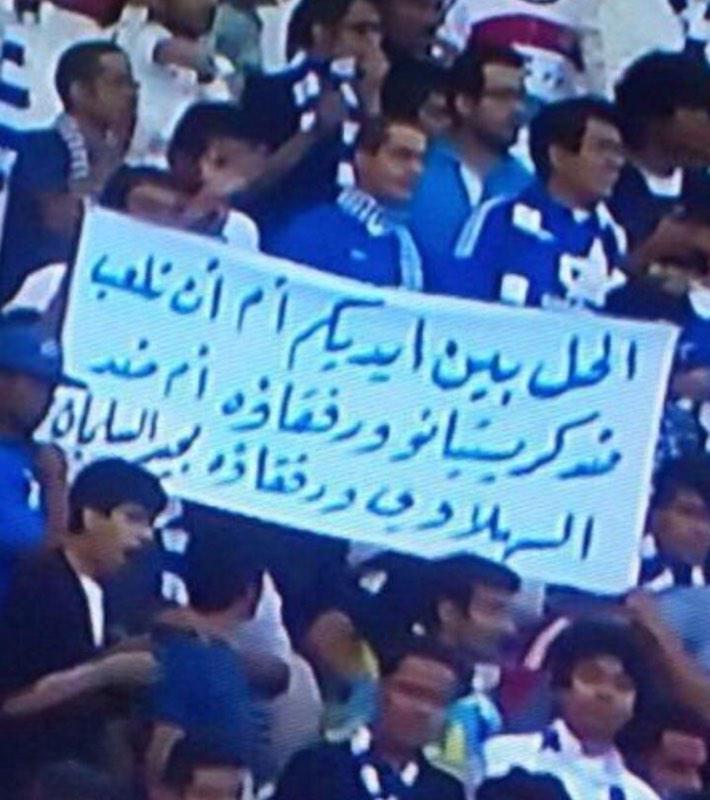 الحل بين ايديكم أم أن نلعب
ضد كريستيانو ورفقاؤه أم ضد
السهلاوي ورفقاؤه